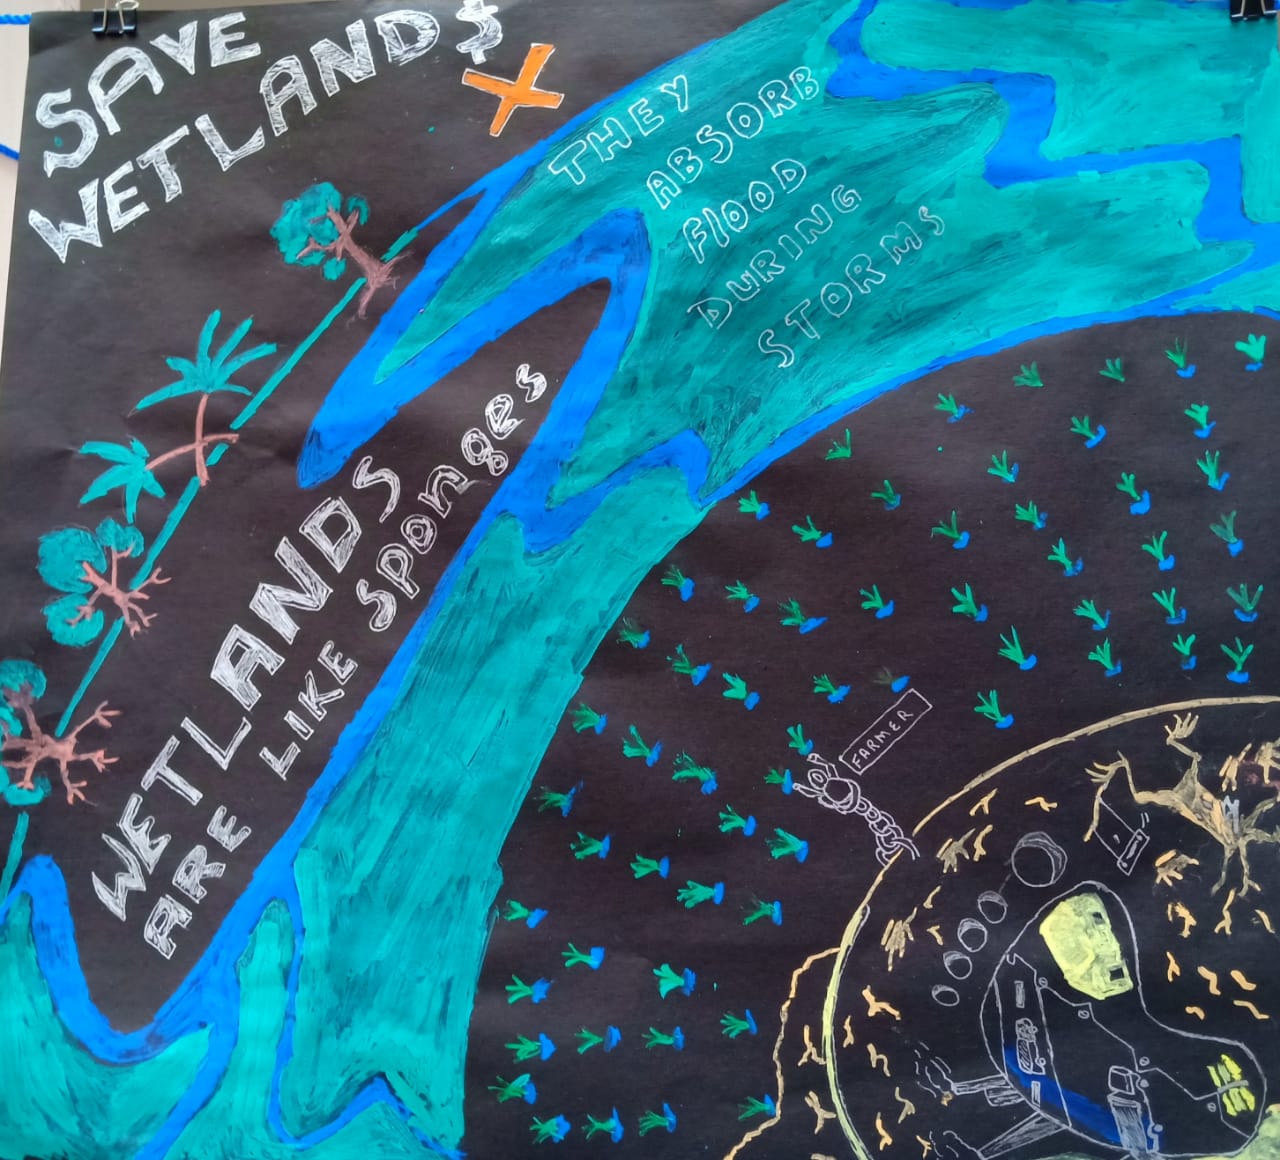 SAVE
WETLAND$
THEY
ABSORB
FlOOD
DURING
STORMS
WETLANDS
ARE LIKE SPonges
FARMER